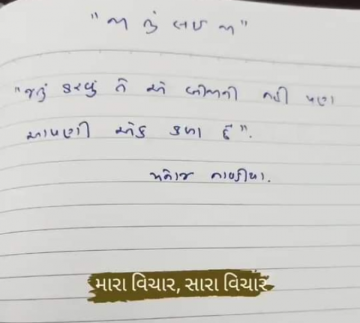 "જા તું લઇ જા"
"જતું કરવું તે એ બીજાની નહી પણ
આપણી એક કળા છે".
મનોજ નાવડીયા.
મારા વિચાર, સારા વિચાર